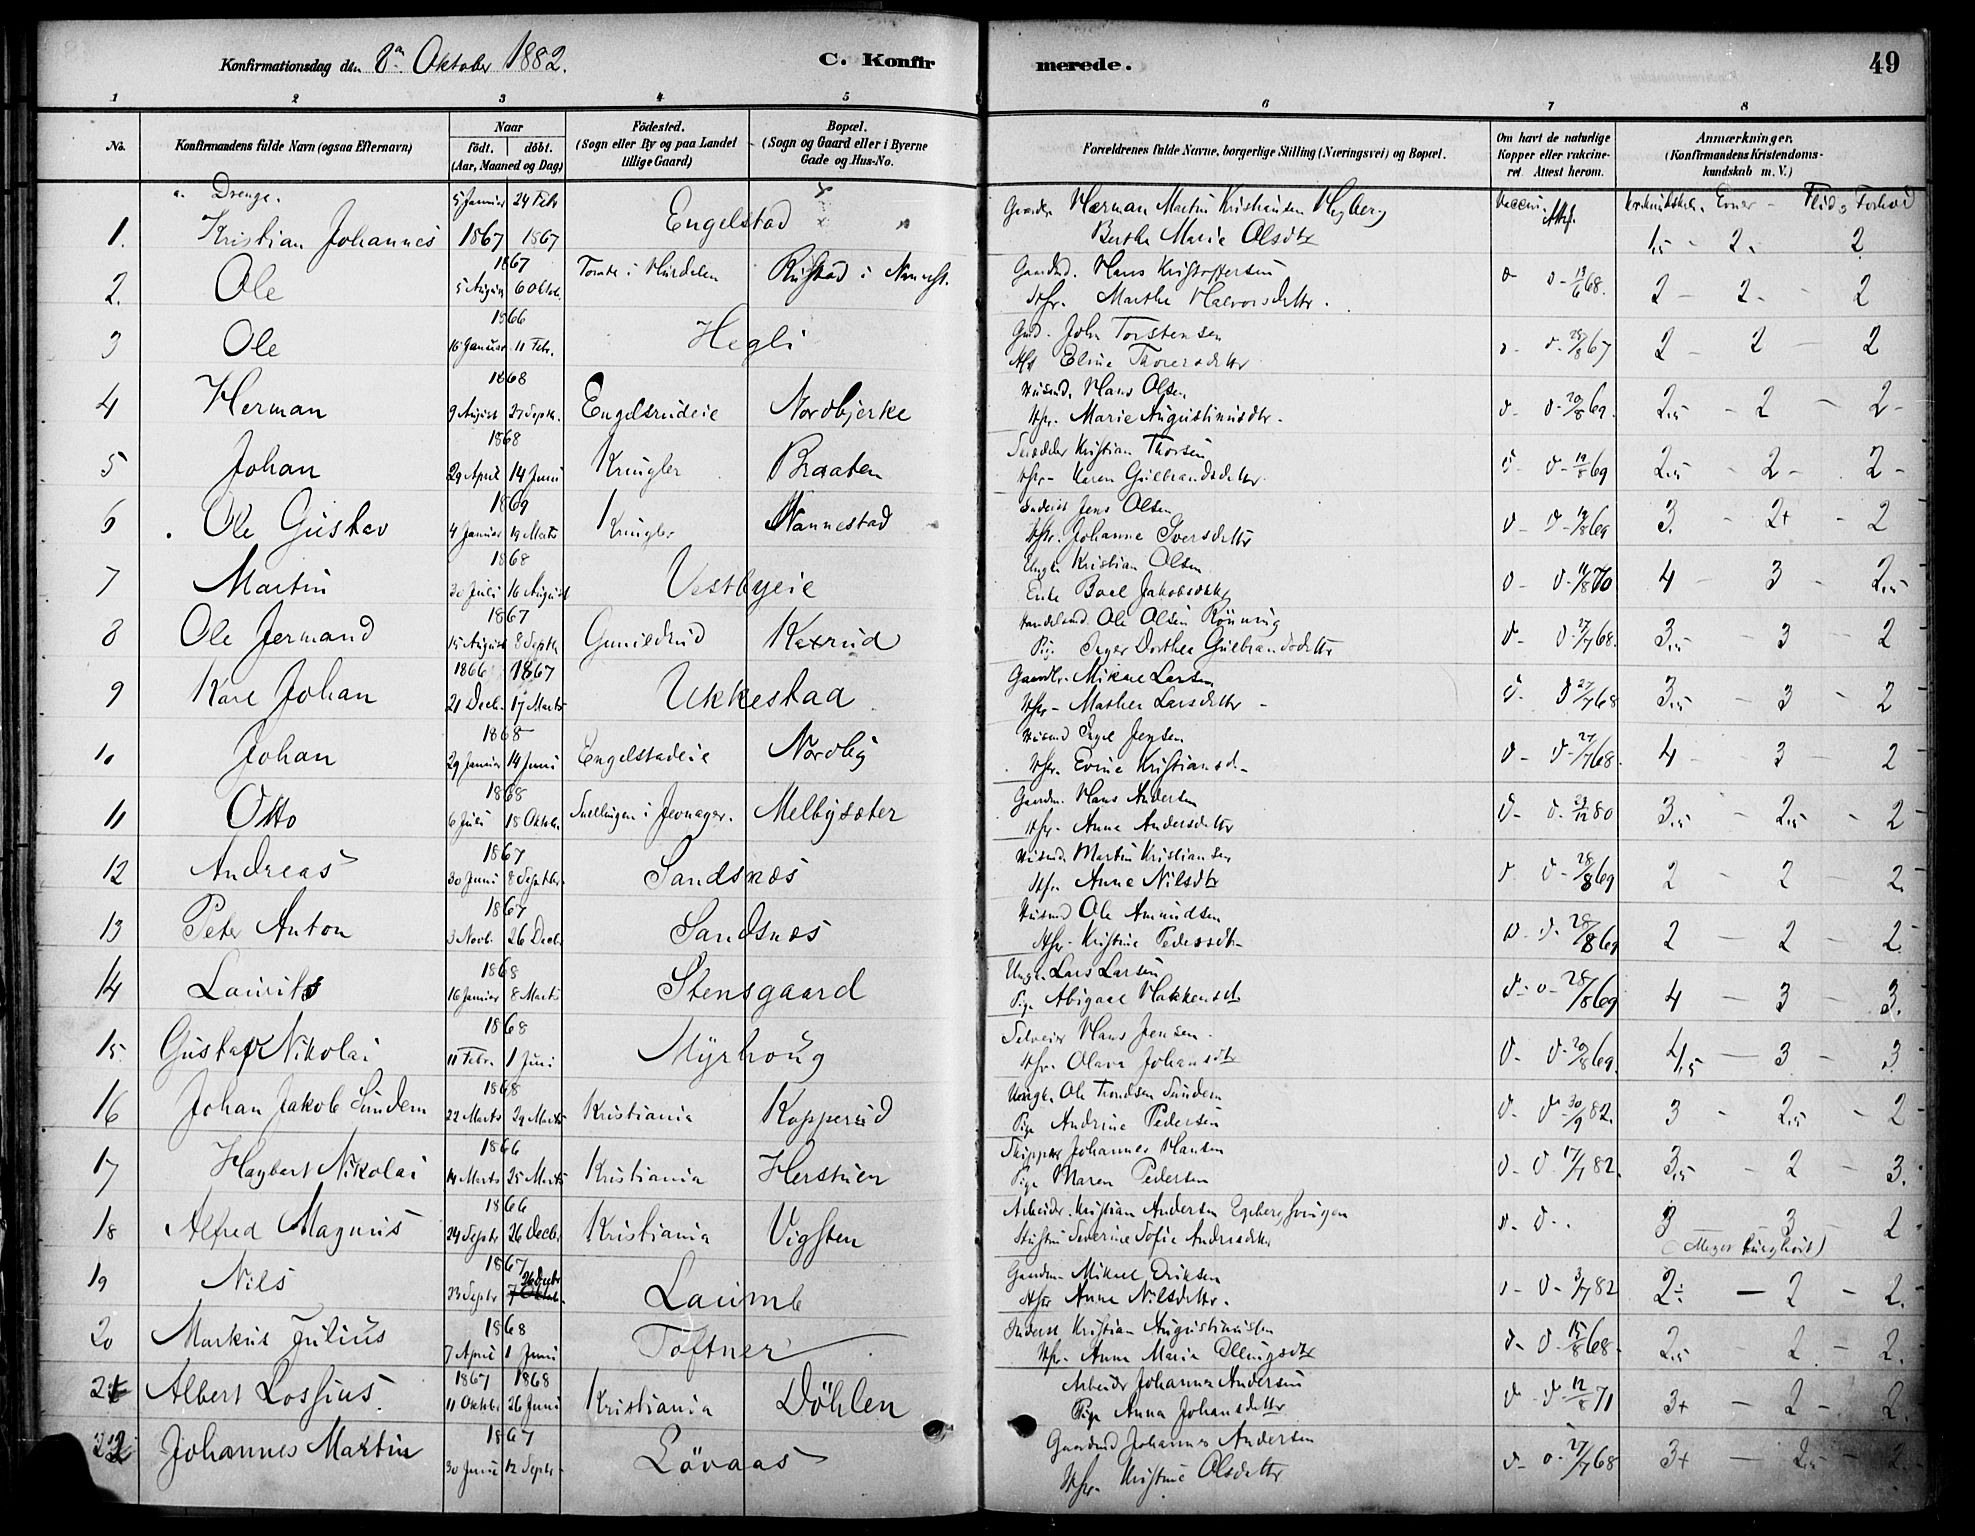 Konfirmationsdag den 8de Oktober 1882.
C. Konfirmerede.
49
1 2 3 4 5 6 7 8
No. Konfirmandens fulde Navn (ogsaa Efternavn) Naar födt. döbt. (Aar, Maaned og Dag) Födested. (Sogn eller By og paa Landet tillige Gaard) Bopæl. (Sogn og Gaard eller i Byerne Gade og Hus-No. Forældrenes fulde Navne, borgerlige Stilling (Næringsvei) og Bopæl. Om havt de naturlige Kopper eller vakcineret. Attest herom. Anmærkninger. (Konfirmandens Kristendomskundskab m. V.)
a. Drenge.
1. Kristian Johannes 5 Januar 1867 24 Febr 1867 Engelstad Herman Martin Kristiansen
Berthe Marie Olsdtr 1,5 - 2 - 2
2. Ole 1867 5 August 6 Oktob. Rustad i Nannest. Gaardmd. Hans Kristoffersen
Hstr. Marthe Halvorsdattr. 13/6 68. 2 - 2 - 2
3 Ole 1866 16 Januar 11 Febr. Hegli Gmd. John Torstensen
Eline Thorersdattr 28/8 67 2 - 2 - 2
4 Herman 1868 9 August 27 Septbr. Engelsrudeie Nordbjerke Husmd. Hans Olsen
Hstr. Marie Augustinusdtr. 20/8 69. 2,5 - 2 - 2
5 Johan 1868 29 April 14 Juni Krugler Braaten Kristian Thorsen
Hstr. Karen Gulbrandsdattr 19/8 69 2,5 - 2 - 2
6 Ole Gustav 1869 4 Januar 19 Marts Krugler Nannestad Inderst Jens Olsen
Hstr. Johanne Iversdattr 19/8 69 3. - 2+ - 2
7 Martin 1868 30 Juli 16 August Vestbyeie Ungk. Kristian Olsen
Enke Boel Jakobsdattr 11/8 70 4 - 3 - 2,5
8 Ole Jermand 1867 15 August 8 Septbr Gunildrud Kexrud Handelsmd. Ole Olsen Rönning
Pige Inger Dorthea Gulbrandsdattr 27/7 68. 3,5 - 3 2
9 Karl Johan 1866 1867 21 Decb. 17 Marts Ukkestad Gaardbr. Mikael Larsen
Hstr. Mathea Larsdattr 27/7 68 3,5 - 3 - 2
10 Johan 1868 29 Januar 14 Juni Engelstadeie Nordby Husmd Ingel Jensen
Hstr. Evine Kristiansd. 27/7 68. 4 - 3 - 2
11 Otto 1868 6 Juli 18 Oktob. Snellingen i Jevnager. Melbysæter Gaardm. Hans Andersen
Hstr. Anne Andersdattr 23/12 80 3,5 - 2,5 - 2
12 Andreas 1867 30 Juni 8 Septbr. Sandsnæs Husmd. Martin Kristiansen
Hstr. Anne Nilsdtr 28/8 69 2 - 2 - 2.
13 Peter Anton 1867 3 Novb. 26 Decbr Sandsnæs Husmd Ole Amundsen
Hstr. Kristine Pedersdtr 28/8 69 2 - 2 - 2
14 Laurits 1868 16 Januar 8 Marts Stensgaard Ungk. Lars Larsen
Pige Abigael Hakkensd. 28/8 69 4 - 3 - 3.
15. Gustav Nikolai 1868 11 Febr. 1 Juni Myrhoug Selveier Hans Jensen
Hstr. Olava Johansdtr 20/8 69. 4,5 - 3 - 3.
16 Johan Jakob Sundem 1868 22 Marts 29 Marts Kristiania Kopperud Ungk. Ole Trondsen Sundem
Pige Andrine Pedersen 30/9 82. 3 - 2,5 - 2
17 Haybert Nikolai 1866 14 Marts 25 Marts Kristiania Herstuen Skipper Johannes Hansen
Pige Maren Pedersen 17/7 82. 3,5 - 2 - 3.
18 Alfred Magnus 1866 24 Septr 26 Decbr Kristiania Vigsten Arbeidr. Kristian Andersen
Severine Sofie Andersdattr 3 - 3 - 2
(Meget tunghört)
19 Nils 1867 23 Septr 26 Decbr Laumb Gaardm. Mikael Eriksen
Hstr Anne Nilsdattr. 3/7 82 2÷ - 2 - 2.
20 Markus Julius 1868 7 April 1 Juni Toftner Inderst Kristian Augustinussen
Hstr. Anne Maria Ellingsdtr 15/8 68. 2,5 - 2 - 2.
21 Albert Lossius 1867 1868 11 Oktob. 26 Juni Kristiania Döhlen Arbeidr Johannes Andersen
Pige Anna Johansdattr 12/8 71 3+ - 2 - 2.
22 Johannes Martin 1867 30 Juni 12 Septr Lövaas Gaardmd Johannes Andersen
Hstr. Kristine Olsdattr 27/7 68 3+ - 2,5 - 2.